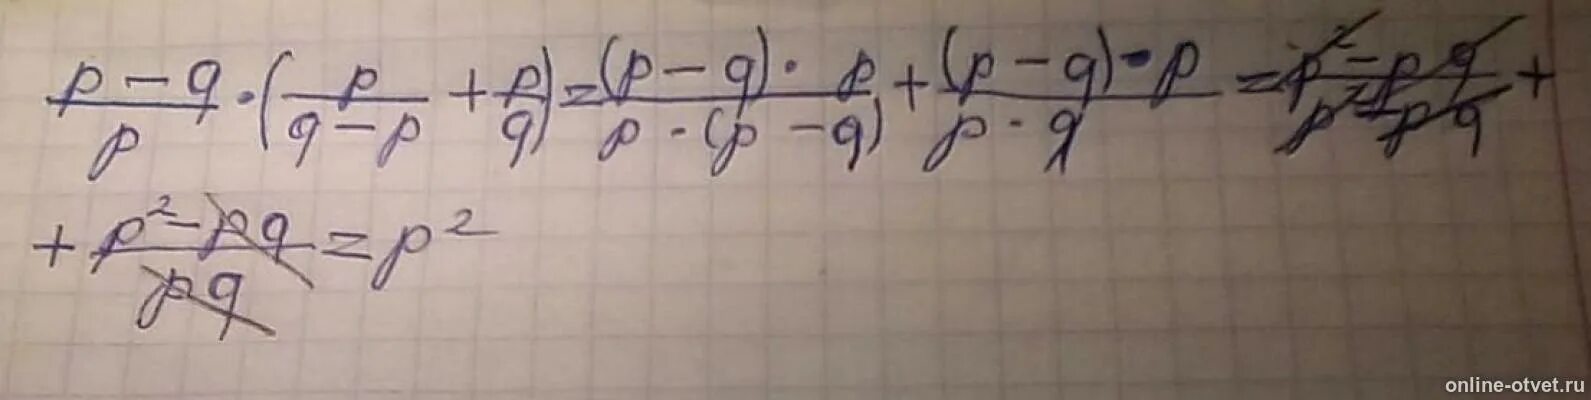 (p - q)/p · (p/(q - p) + p/q) = ((p - q) · p)/(p · (p - q)) + ((p - q) · p)/(p · q) = (p² - pq)/(p² - pq) +
+ (p² - pq)/(pq) = p²
online-otvet.ru